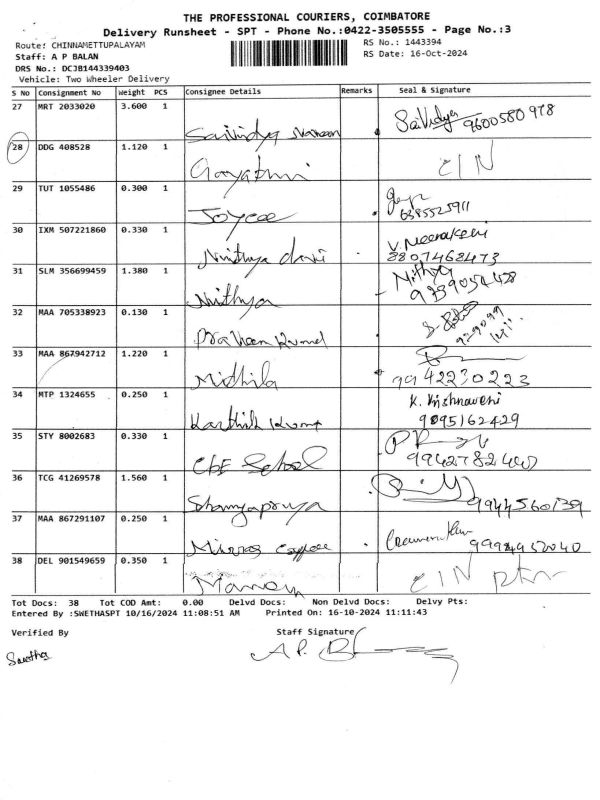 THE PROFESSIONAL COURIERS, COIMBATORE
Delivery Runsheet - SPT - Phone No.:0422-3505555 - Page No.:3
Route: CHINNAMETTUPALAYAM RS No.: 1443394
Staff: A P BALAN RS Date: 16-Oct-2024
DRS No.: DCJB144339403
Vehicle: Two Wheeler Delivery
S No Consignment No Weight PCS Consignee Details Remarks Seal & Signature
27 MRT 2033020 3.600 1 Saividya SaiVidya 9600580978
28 DDG 408528 1.120 1 Gayatri
29 TUT 1055486 0.300 1 Joycee 6385525911
30 IXM 507221860 0.330 1 Nnithya V. Meenakshi
8807468473
31 SLM 356699459 1.380 1 Nnithya Nithya
32 MAA 705338923 0.130 1 Praveen Kumar
33 MAA 867942712 1.220 1 Mithila 9942230223
34 MTP 1324655 0.250 1 Karthik Kumar K. Krishnaveni
9095162429
35 STY 8002683 0.330 1 CBE School
36 TCG 41269578 1.560 1 Shanyapriya 9944560139
37 MAA 867291107 0.250 1
38 DEL 901549659 0.350 1 CIN
Tot Docs: 38 Tot COD Amt: 0.00 Delvd Docs: Non Delvd Docs: Delvy Pts:
Entered By :SWETHASPT 10/16/2024 11:08:51 AM Printed On: 16-10-2024 11:11:43
Verified By Staff Signature
Swetha A P. B